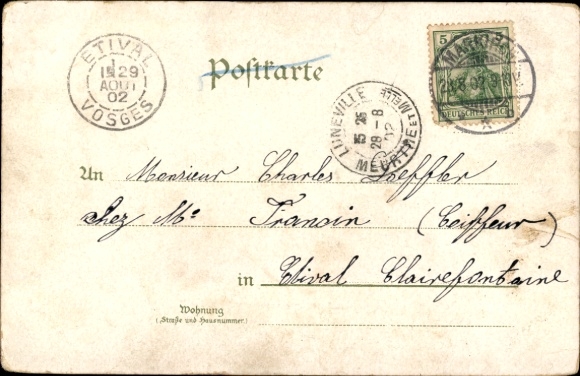 ETIVAL
1E 29
AOUT
02
VOSGES
Postkarte
LUNEVILLE
15 25
29-8
02
MEURTHE ET MELLE
5
DEUTSCHES REICH
An Monsieur Charles
chez Mr. Francin (Coiffeur)
in Etival Clairefontaine
Wohnung
(Straße und Hausnummer)